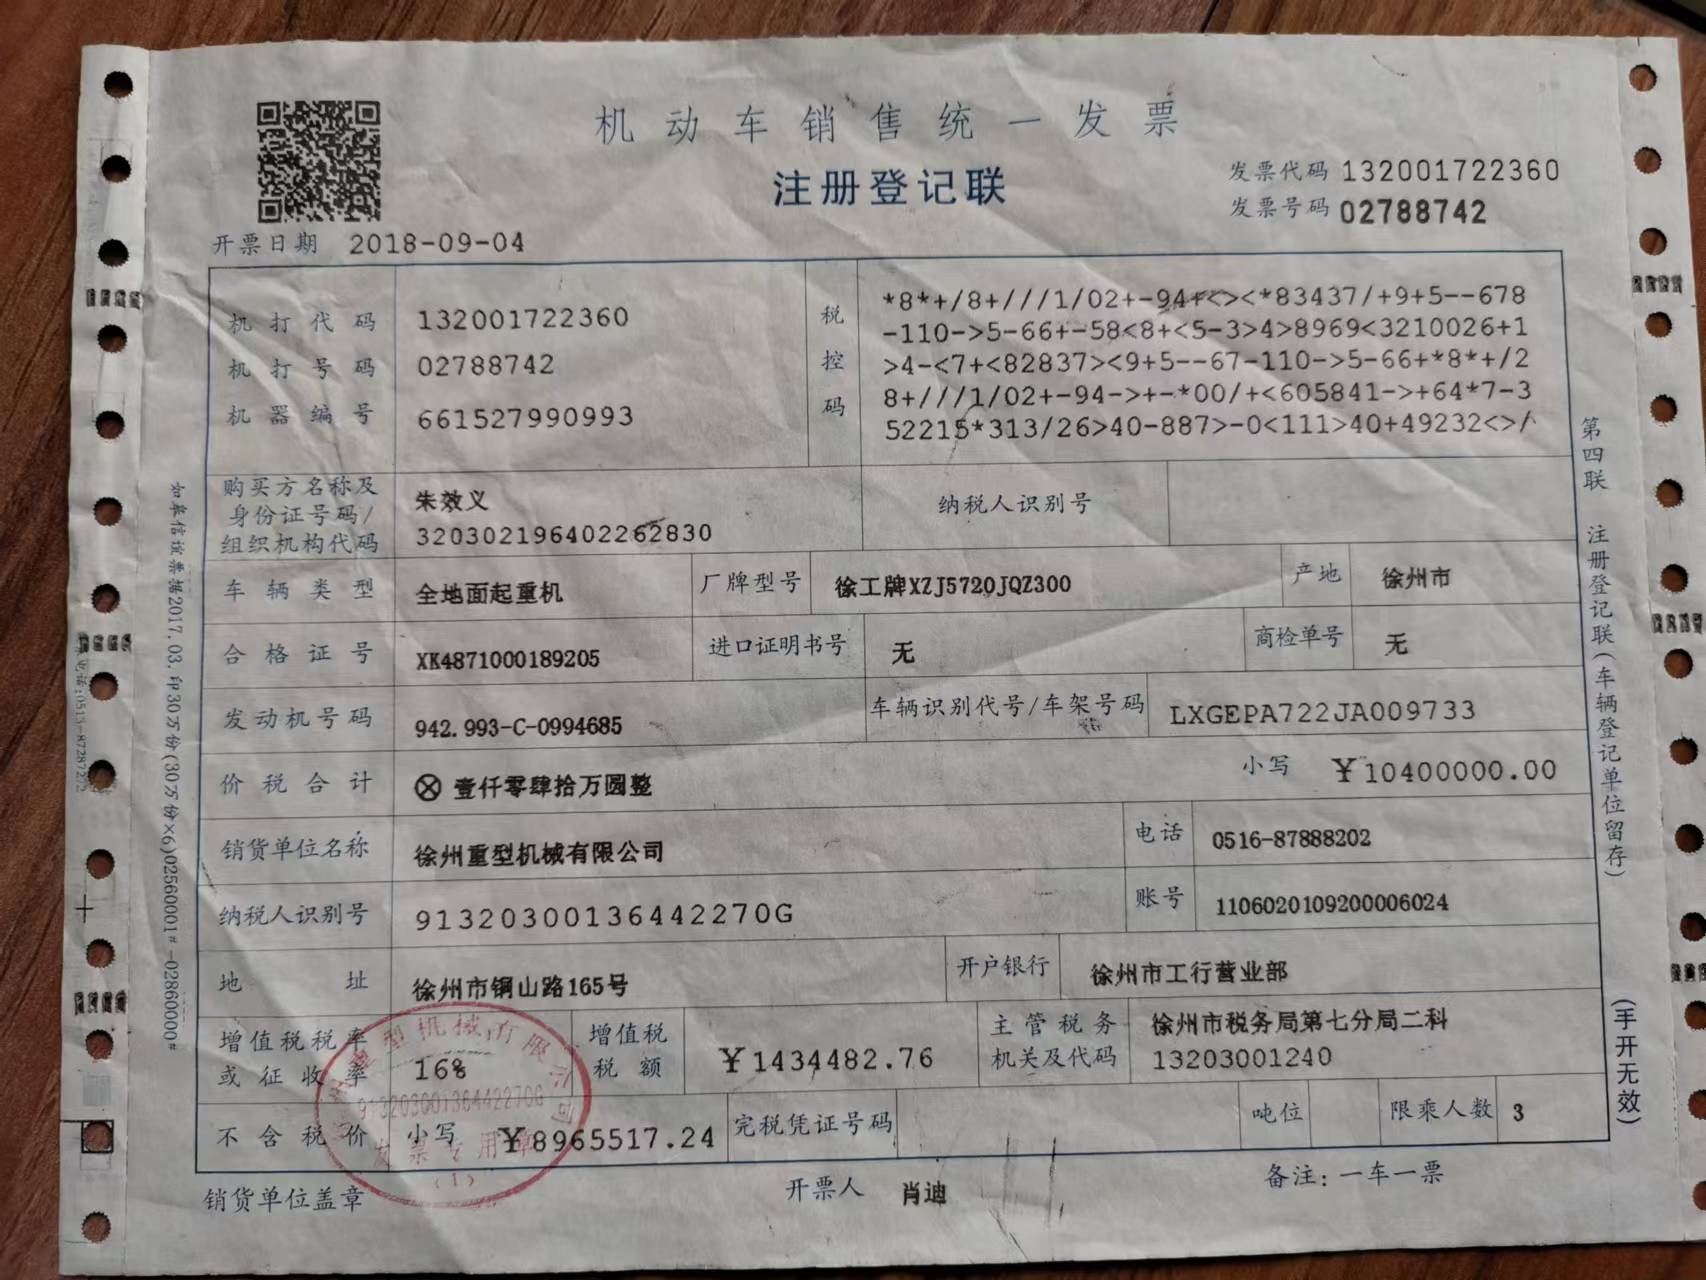 机动车销售统一发票
注册登记联
发票代码 132001722360
发票号码 02788742
开票日期 2018-09-04
机打代码 132001722360
机打号码 02788742
机器编号 661527990993
税控码
*8*+/8+///1/02+-94+<><*83437/+9+5--678
-110->5-66+-58<8+<5-3>4>8969<3210026+1
>4-<7+<82837><9+5--67-110->5-66+*8*+/2
8+///1/02+-94->+-*00/+<605841->+64*7-3
52215*313/26>40-887>-0<111>40+49232<>/
购买方名称及身份证号码/组织机构代码
朱效义
320302196402262830
纳税人识别号
车辆类型 全地面起重机 厂牌型号 徐工牌XZJ5720JQZ300 产地 徐州市
合格证号 XK4871000189205 进口证明书号 无 商检单号 无
发动机号码 942.993-C-0994685 车辆识别代号/车架号码 LXGEPA722JA009733
价税合计 ⊗ 壹仟零肆拾万圆整 小写 ¥10400000.00
销货单位名称 徐州重型机械有限公司 电话 0516-87888202
纳税人识别号 91320300136442270G 账号 1106020109200006024
地址 徐州市铜山路165号 开户银行 徐州市工行营业部
增值税税率或征收率 16% 增值税税额 ¥1434482.76 主管税务机关及代码 徐州市税务局第七分局二科
13203001240
不含税价 小写 ¥8965517.24 完税凭证号码 吨位 限乘人数 3
销货单位盖章 开票人 肖迪 备注：一车一票
徐州重型机械有限公司
91320300136442270G
发票专用章
(1)
第四联 注册登记联(车辆登记单位留存)
(手开无效)